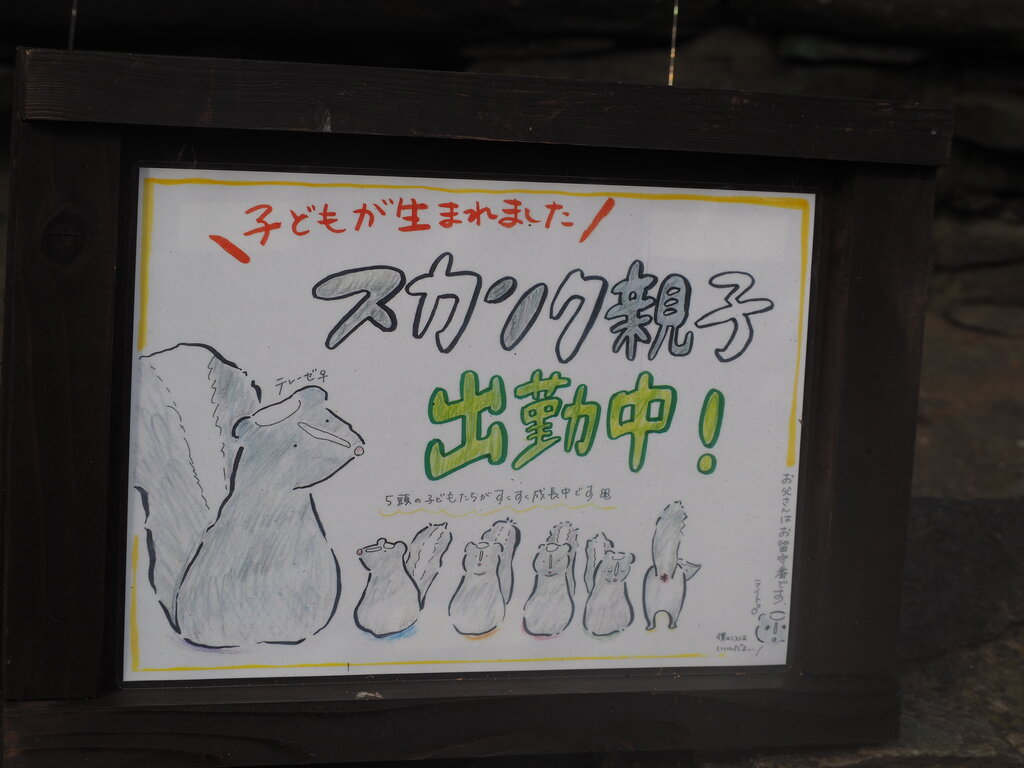 子どもが生まれました
スカンク親子
出勤中!
テレーゼ♀
5頭の子どもたちがすくすく成長中です
お父さんはお留守番です。
ライト♂
僕のことは
いいんだよ…